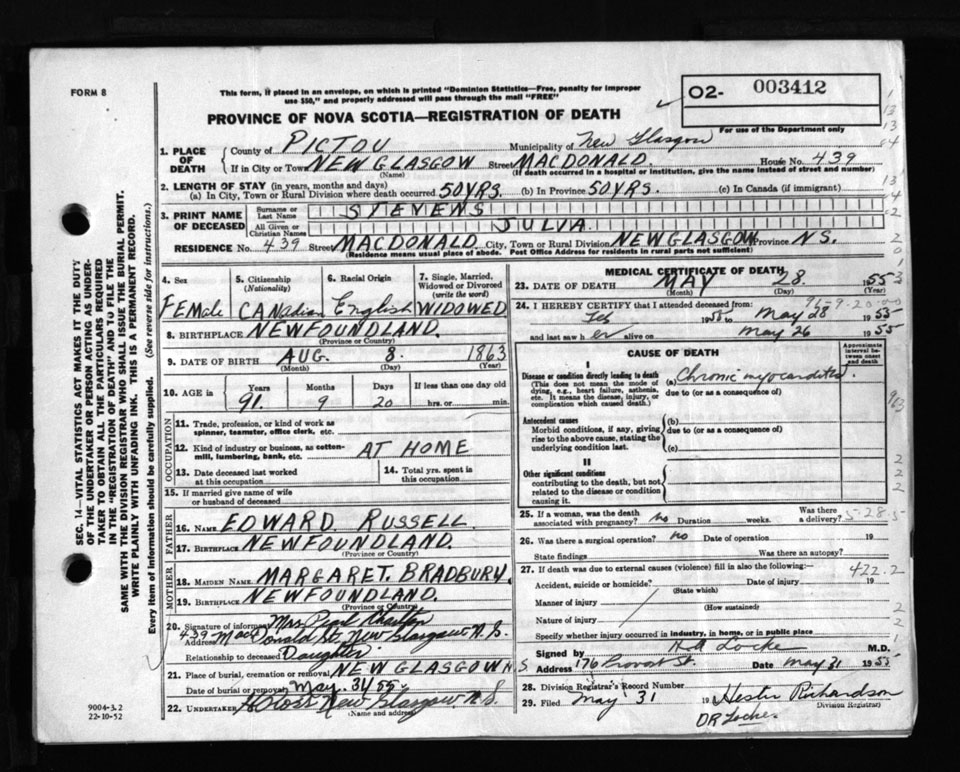 FORM 8
This form, if placed in an envelope, on which is printed "Dominion Statistics—Free, penalty for improper
use $50," and properly addressed will pass through the mail "FREE"
O2- 003412
For use of the Department only
PROVINCE OF NOVA SCOTIA—REGISTRATION OF DEATH
1. PLACE OF DEATH
County of PICTOU Municipality of New Glasgow
If in City or Town NEW GLASGOW Street MACDONALD. House No. 439
(Name) (If death occurred in a hospital or institution, give the name instead of street and number)
2. LENGTH OF STAY (in years, months and days)
(a) In City, Town or Rural Division where death occurred 50YRS. (b) In Province 50YRS. (c) In Canada (if immigrant)
3. PRINT NAME OF DECEASED
Surname or Last Name STEVENS
All Given or Christian Names JULIA
RESIDENCE No. 439 Street MACDONALD City, Town or Rural Division NEW GLASGOW Province N.S.
(Residence means usual place of abode. Post Office Address for residents in rural parts not sufficient)
4. Sex
FEMale
5. Citizenship (Nationality)
CANadian
6. Racial Origin
English
7. Single, Married, Widowed or Divorced (write the word)
WIDOWED
8. BIRTHPLACE NEWFOUNDLAND.
(Province or Country)
9. DATE OF BIRTH AUG. 8. 1863
(Month) (Day) (Year)
10. AGE in Years Months Days If less than one day old
91. 9 20 hrs. or min.
OCCUPATION
11. Trade, profession, or kind of work as
spinner, teamster, office clerk, etc.
12. Kind of industry or business, as cotton-
mill, lumbering, bank, etc. AT HOME
13. Date deceased last worked
at this occupation
14. Total yrs. spent in
this occupation
15. If married give name of wife
or husband of deceased
FATHER
16. Name EDWARD RUSSELL.
17. Birthplace NEWFOUNDLAND.
(Province or Country)
MOTHER
18. Maiden Name MARGARET. BRADBURY.
19. Birthplace NEWFOUNDLAND.
(Province or Country)
20. Signature of informant Mrs Pearl
Address 439 MacDonald St, New Glasgow N.S.
Relationship to deceased Daughter.
21. Place of burial, cremation or removal NEW GLASGOW N.S.
Date of burial or removal May. 31/55.
22. Undertaker New Glasgow N.S.
(Name and address)
MEDICAL CERTIFICATE OF DEATH
23. DATE OF DEATH MAY 28. 1955
(Month) (Day) (Year)
24. I HEREBY CERTIFY that I attended deceased from:
Feb 1955 to May 28 1955
and last saw her alive on May 26 1955
CAUSE OF DEATH
Approximate interval between onset and death
Disease or condition directly leading to death
(This does not mean the mode of dying, e.g., heart failure, asthenia, etc. It means the disease, injury, or complication which caused death.)
(a) Chronic myocarditis.
due to (or as a consequence of)
Antecedent causes
Morbid conditions, if any, giving rise to the above cause, stating the underlying condition last.
(b)
due to (or as a consequence of)
(c)
II
Other significant conditions
contributing to the death, but not related to the disease or condition causing it.
25. If a woman, was the death
associated with pregnancy? no Duration weeks. Was there a delivery?
26. Was there a surgical operation? no Date of operation 19
State findings Was there an autopsy?
27. If death was due to external causes (violence) fill in also the following: 422.2
Accident, suicide or homicide? Date of injury 19
(State which)
Manner of injury
(How sustained)
Nature of injury
Specify whether injury occurred in industry, in home, or in public place
Signed by H A Locke M.D.
Address 176 Provost St. Date May 31 1955
28. Division Registrar's Record Number
29. Filed May 31 19 Hester Richardson
Division Registrar)
DR Locke.
SEC. 14—VITAL STATISTICS ACT MAKES IT THE DUTY
OF THE UNDERTAKER OR PERSON ACTING AS UNDER-
TAKER TO OBTAIN ALL THE PARTICULARS REQUIRED
IN THE "REGISTRATION OF DEATH" AND TO FILE THE
SAME WITH THE DIVISION REGISTRAR WHO SHALL ISSUE THE BURIAL PERMIT.
WRITE PLAINLY WITH UNFADING INK. THIS IS A PERMANENT RECORD.
Every item of information should be carefully supplied. (See reverse side for instructions.)
9004-3.2
22-10-52